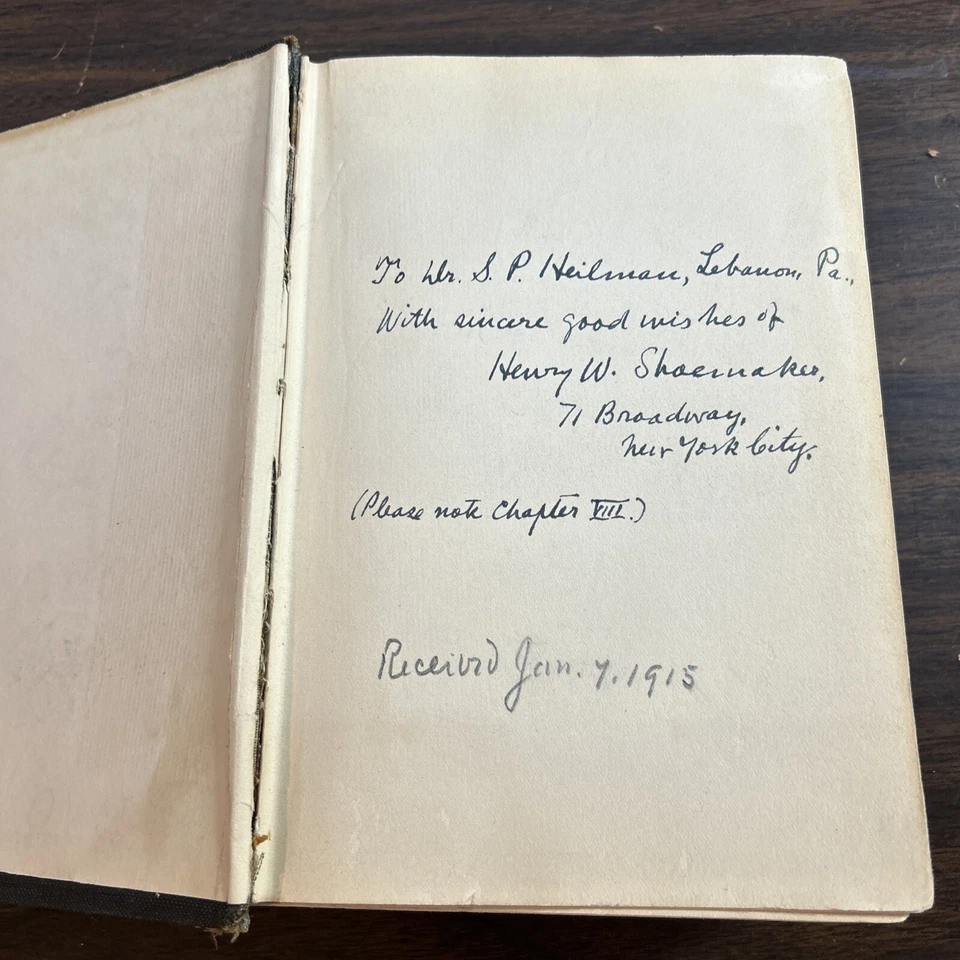 To Dr. S. P. Heilman, Lebanon, Pa.,
With sincere good wishes of
Henry W. Shoemaker,
71 Broadway,
New York City.
(Please note Chapter VIII.)
Received Jan. 7. 1915